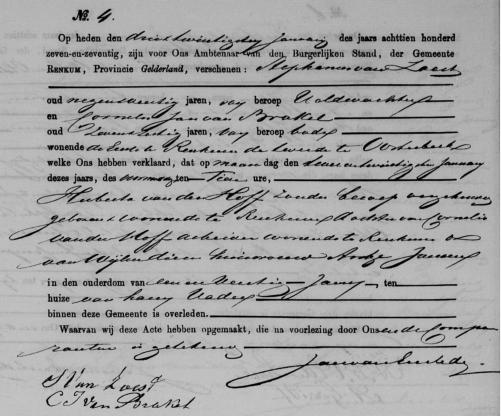 No. 4.
Op heden den drieëntwintigsten January des jaars achttien honderd
zeven-en-zeventig, zijn voor Ons Ambtenaar van den Burgerlijken Stand, der Gemeente
RENKUM, Provincie Gelderland, verschenen: Stephanus van Loest
oud negenenveertig jaren, van beroep Veldwachter
en Cornelis Jan van Brakel
oud jaren, van beroep bode
wonende de Eerste te Renkum de tweede te Oosterbeek
welke Ons hebben verklaard, dat op maandag den tweeentwintigsten January
dezes jaars, des voormiddags ten Tien ure,
Huberta van den Hoff zonder beroep ongehuwd
geboren wonende te Renkum dochter van Cornelis
van den Hoff arbeider wonende te Renkum en
van Wijlen diens huisvrouw Jansen
in den ouderdom van een en Veertig Jaren, ten
huize van haren Vader
binnen deze Gemeente is overleden.
Waarvan wij deze Acte hebben opgemaakt, die na voorlezing door Ons en de Compa
ranten is geteekend
S Van Loest
C J Van Brakel